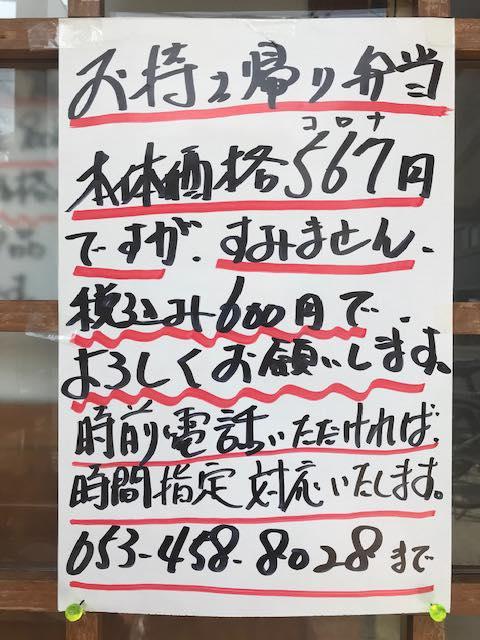 お持ち帰り弁当
コロナ
本体価格567円
ですが、すみません、
税込み600円で、
よろしくお願いします。
時前電話いただければ、
時間指定対応いたします。
053-458-8028まで